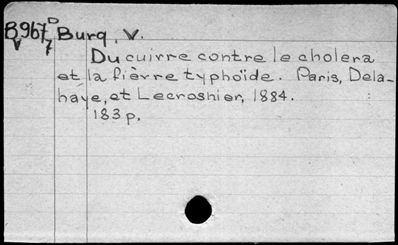 8967 D Burq, V.
V 7
Du cuivre contre le cholera
et la fièvre typhoïde. Paris, Dela-
haye, et Lecroshier, 1884.
183 p.